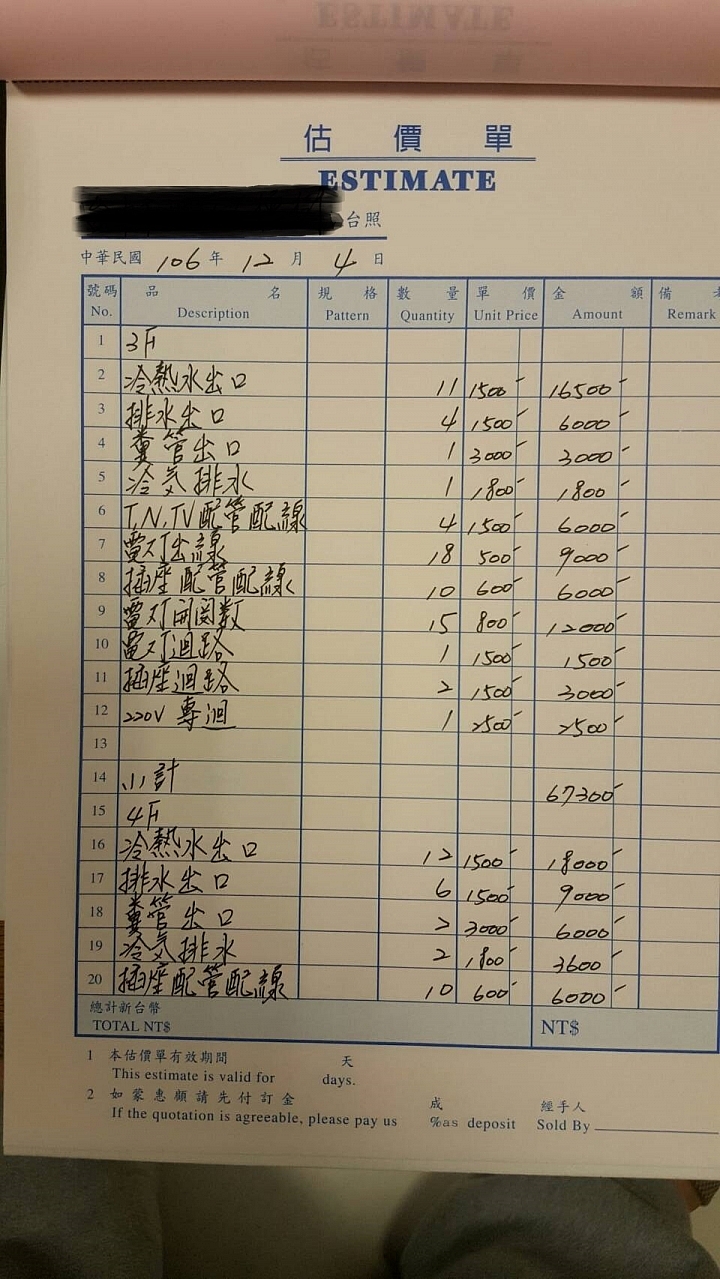 估價單
ESTIMATE
台照
中華民國 106 年 12 月 4 日
號碼 品名 規格 數量 單價 金額 備
No. Description Pattern Quantity Unit Price Amount Remark
1 3F
2 冷熱水出口 11 1500 16500
3 排水出口 4 1500 6000
4 糞管出口 1 3000 3000
5 冷気排水 1 1800 1800
6 T,N,TV配管配線 4 1500 6000
7 電灯出線 18 500 9000
8 插座配管配線 10 600 6000
9 電灯開関数 15 800 12000
10 電灯迴路 1 1500 1500
11 插座迴路 2 1500 3000
12 220V 專迴 1 2500 2500
13
14 小計 67300
15 4F
16 冷熱水出口 12 1500 18000
17 排水出口 6 1500 9000
18 糞管出口 2 3000 6000
19 冷気排水 2 1800 3600
20 插座配管配線 10 600 6000
總計新台幣
TOTAL NT$ NT$
1 本估價單有效期間 天
This estimate is valid for days.
2 如蒙惠顧請先付訂金 成 經手人
If the quotation is agreeable, please pay us %as deposit Sold By